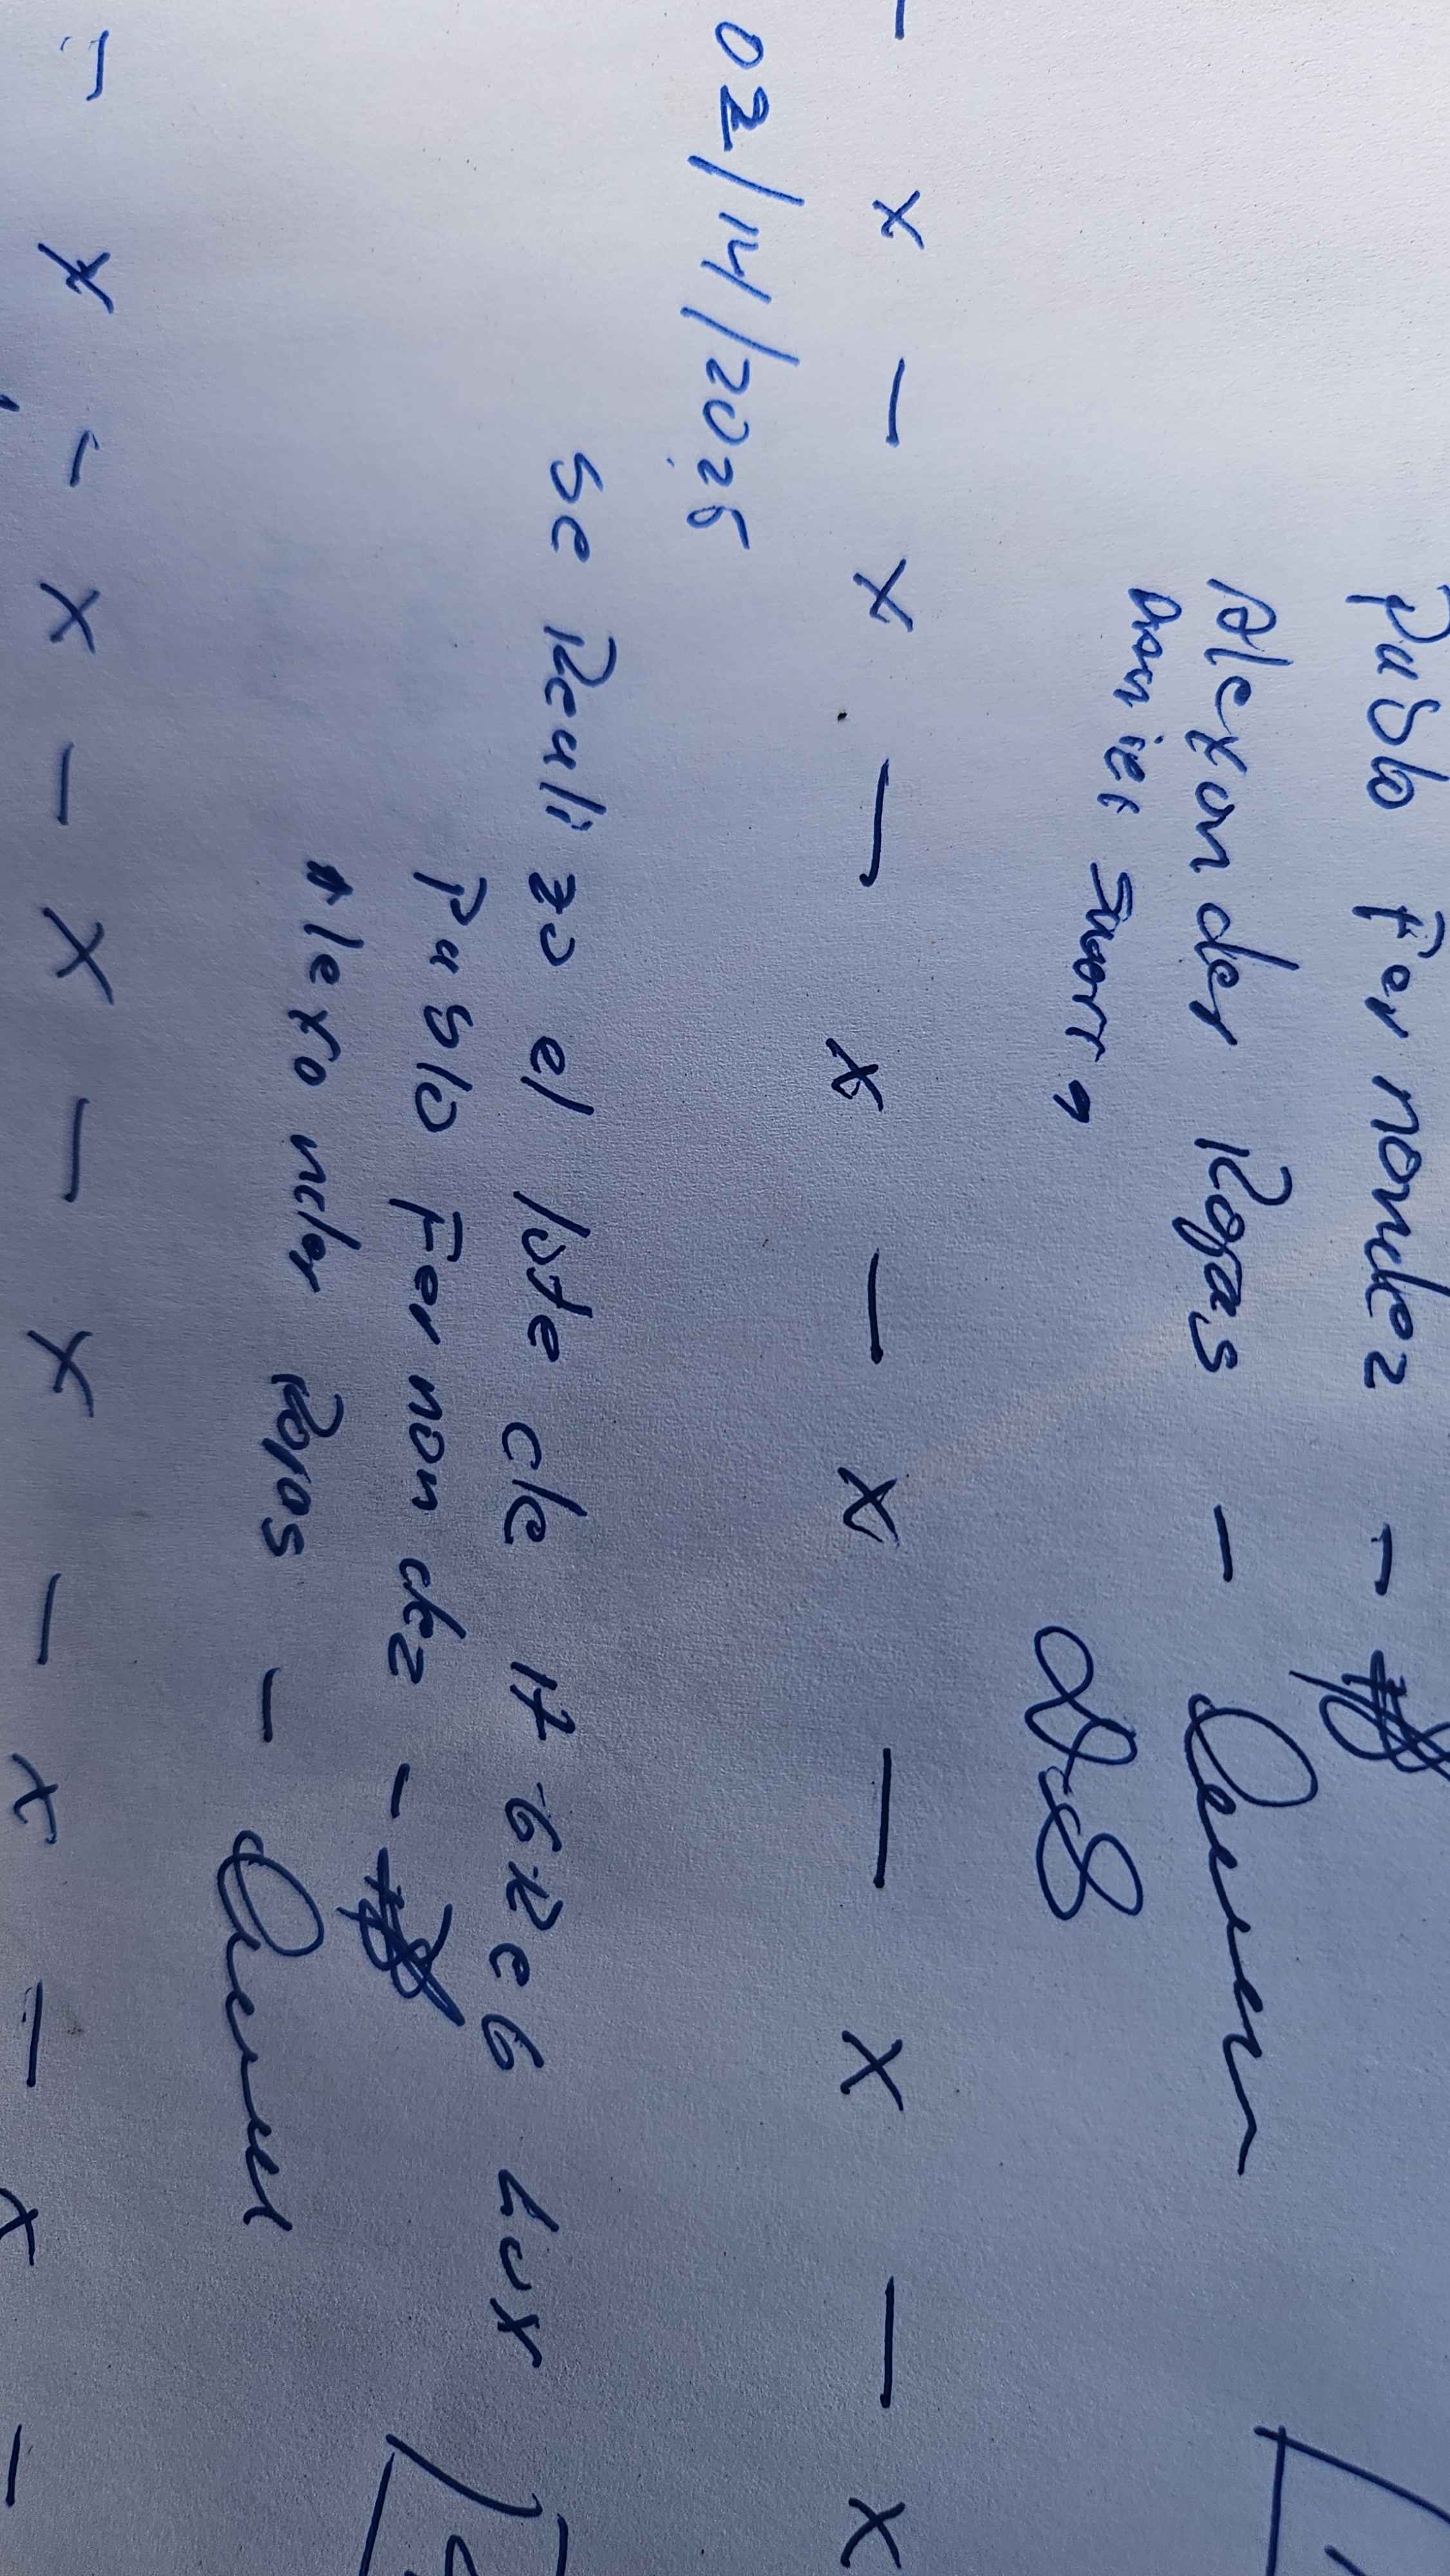 Pablo Fernandez -
Alexander Rojas -
Daniel
- x - x - x - x - x - x
02/14/2025
Se Realizo el lote de 17 6Re6 Lux
Pablo Fernandez -
Alexander Rojas -
- x - x - x - x - x - x -